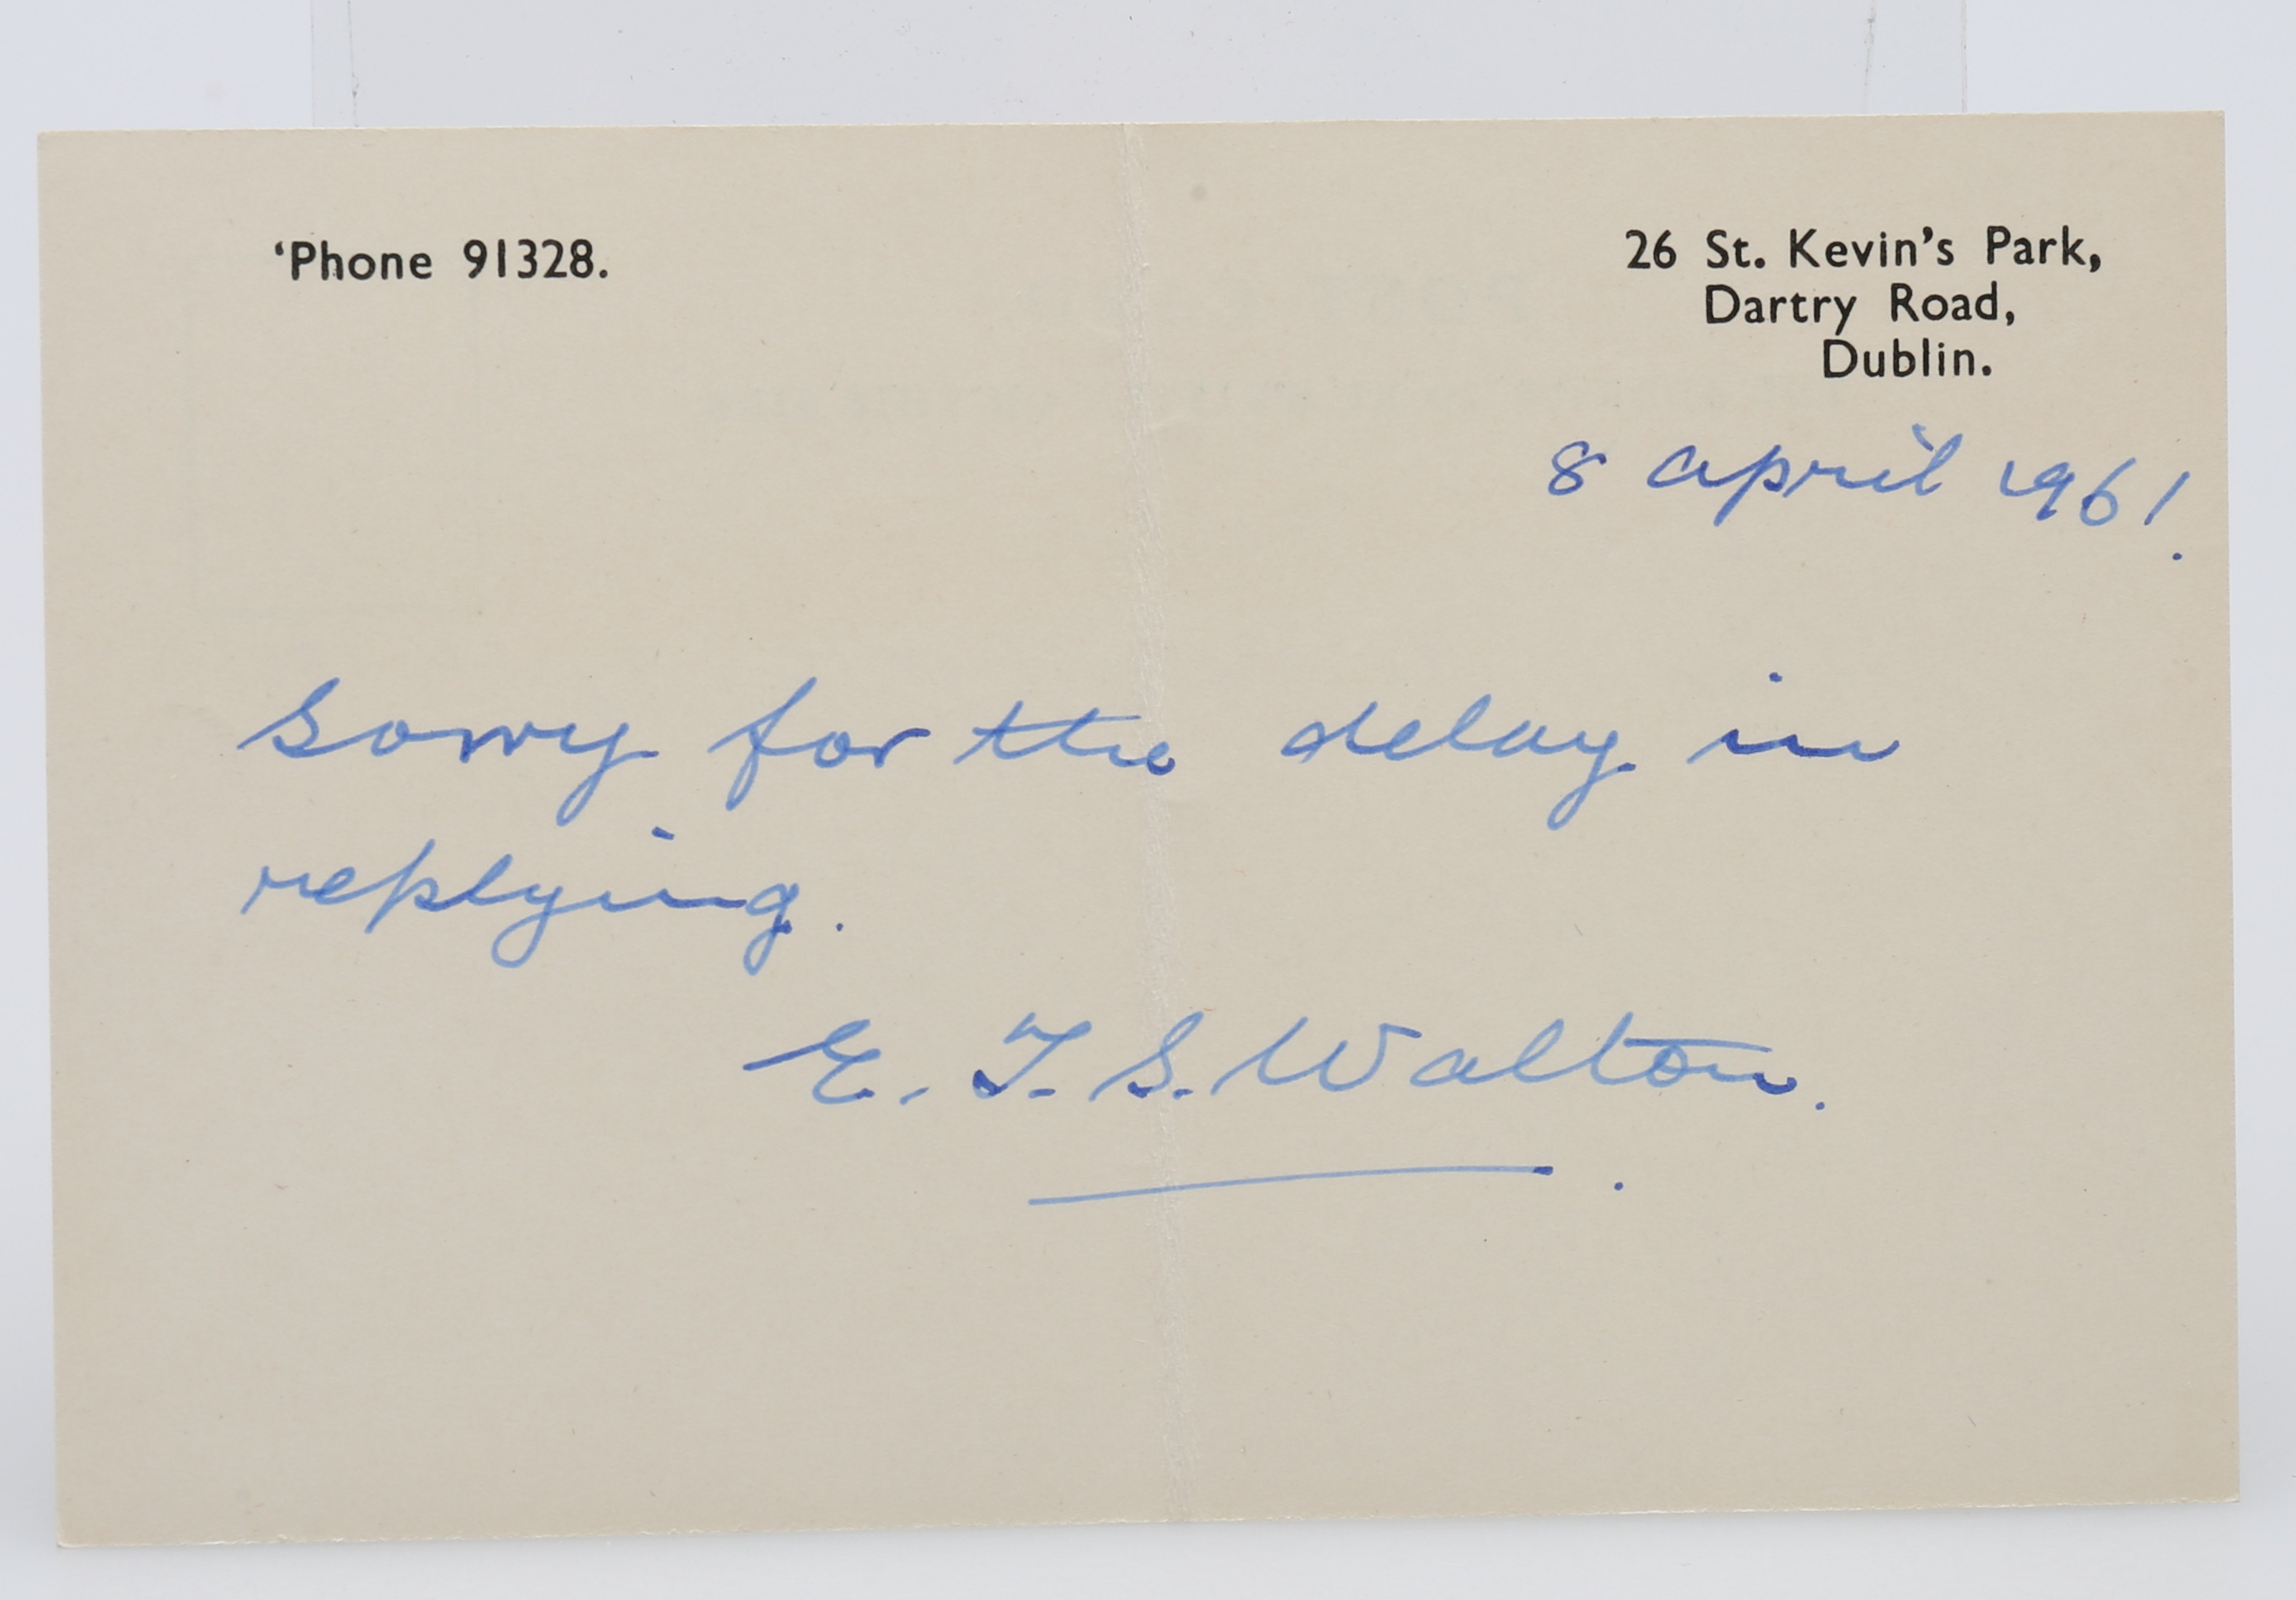 ‘Phone 91328.
26 St. Kevin’s Park,
Dartry Road,
Dublin.
8 April 1961.
Sorry for the delay in
replying.
E. T. S. Walton.